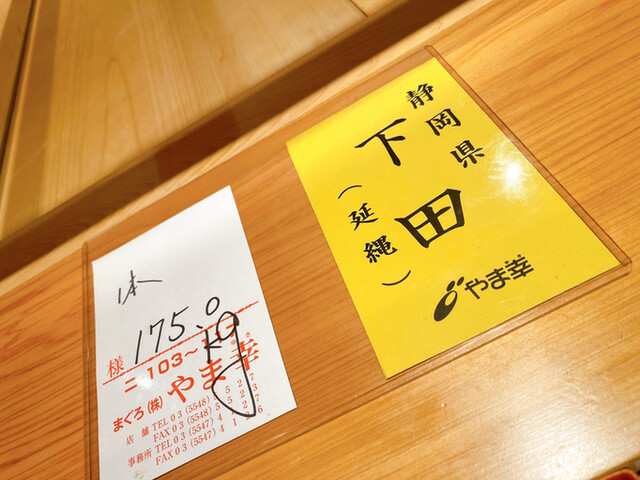 静岡県
下田
(延縄)
やま幸
175.0
kg
様
ニ-103~
まぐろ(株)やま幸
店舗 TEL 03(5548)5527
FAX 03(5548)5523
事務所 TEL 03(5547)4237
FAX 03(5547)4126